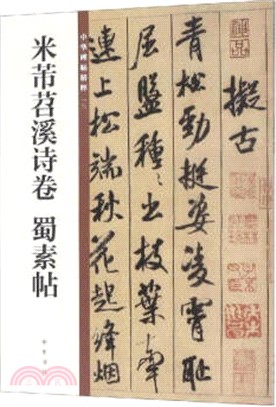 中华碑帖精粹
米芾苕溪诗卷 蜀素帖
中华书局
擬古
青松勁挺姿凌霄恥
屈盤種種出枝葉牽
連上松端秋花起絳烟